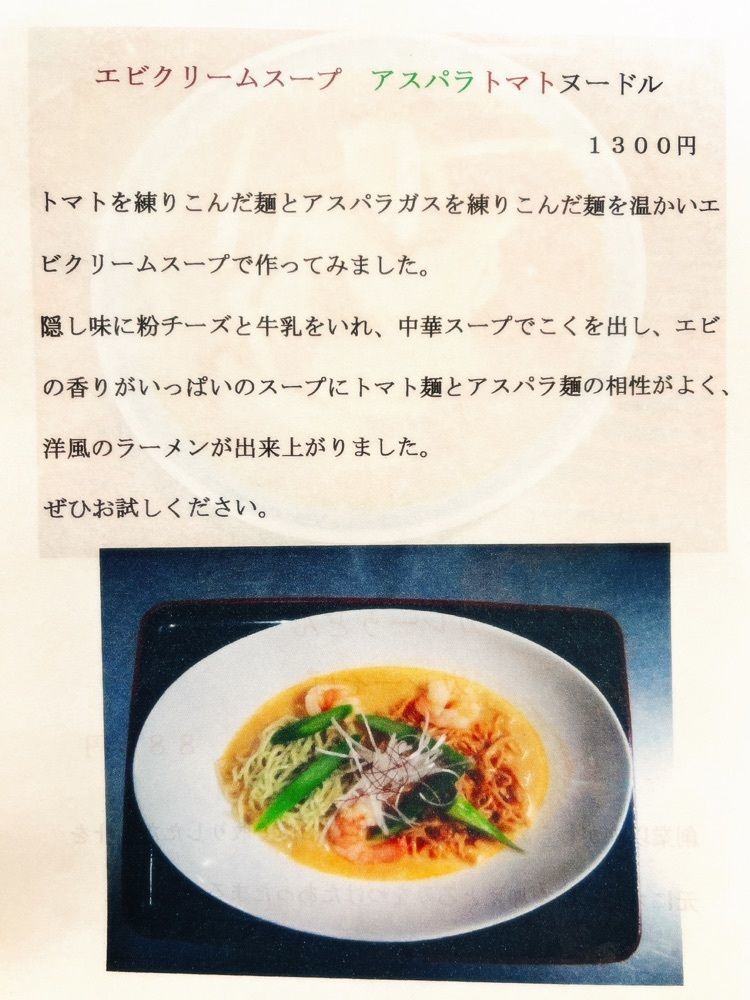 エビクリームスープ　アスパラトマトヌードル
１３００円
トマトを練りこんだ麺とアスパラガスを練りこんだ麺を温かいエ
ビクリームスープで作ってみました。
隠し味に粉チーズと牛乳をいれ、中華スープでこくを出し、エビ
の香りがいっぱいのスープにトマト麺とアスパラ麺の相性がよく、
洋風のラーメンが出来上がりました。
ぜひお試しください。